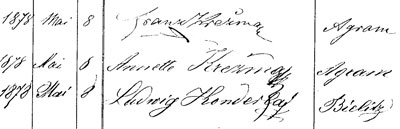 1878 Mai 8 Franz Krežma Agram
1878 Mai 8 Annette Krežma Agram
1878 Mai 8 Ludwig Bielitz